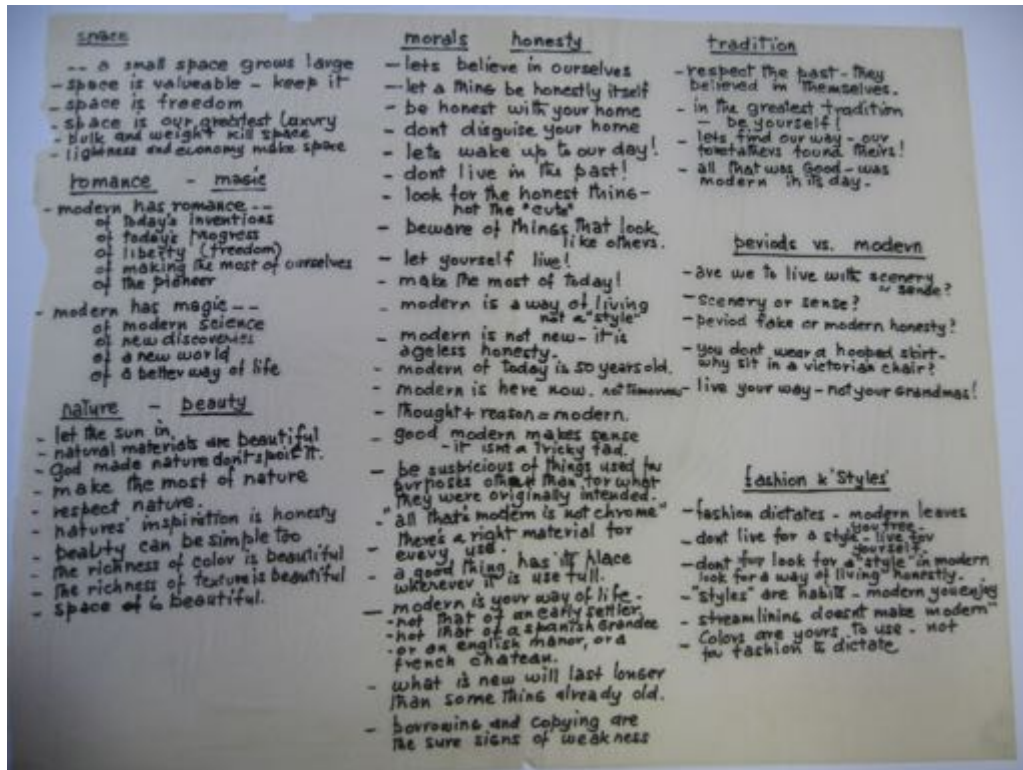 space
-- a small space grows large
- space is valueable - keep it
- space is freedom
- space is our greatest luxury
- bulk and weight kill space
- lightness and economy make space
romance - magic
- modern has romance --
of today's inventions
of today's progress
of liberty (freedom)
of making the most of ourselves
of the pioneer
- modern has magic --
of modern science
of new discoveries
of a new world
of a better way of life
nature - beauty
- let the sun in.
- natural materials are beautiful
- god made nature don't spoil it.
- make the most of nature
- respect nature.
- natures' inspiration is honesty
- beauty can be simple too
- the richness of color is beautiful
- the richness of texture is beautiful
- space is beautiful.
morals honesty
- lets believe in ourselves
- let a thing be honestly itself
- be honest with your home
- dont disguise your home
- lets wake up to our day!
- dont live in the past!
- look for the honest thing -
not the "cute"
- beware of things that look
like others.
- let yourself live!
- make the most of today!
- modern is a way of living
not a "style"
- modern is not new - it is
ageless honesty.
- modern of today is 50 years old.
- modern is here now. not tomorrow
- thought + reason = modern.
- good modern makes sense
- it isnt a tricky fad.
- be suspicious of things used for
purposes other than for what
they were originally intended.
- "all that's modern is not chrome"
there's a right material for
every use.
- a good thing has its place
whenever it is use full.
- modern is your way of life -
- not that of an early settler
- not that of a spanish grandee
- or an english manor, or a
french chateau.
- what is new will last longer
than some thing already old.
- borrowing and copying are
the sure signs of weakness
tradition
- respect the past - they
believed in themselves.
- in the greatest tradition
- be yourself!
- lets find our way - our
forefathers found theirs!
- all that was good - was
modern in its day.
periods vs. modern
- are we to live with scenery
or sense?
- scenery or sense?
- period fake or modern honesty?
- you dont wear a hooped skirt -
why sit in a victorian chair?
- live your way - not your grandmas!
fashion & 'styles'
- fashion dictates - modern leaves
you free.
- dont live for a style - live for
yourself.
- dont look for a "style" in modern
look for a way of living honestly.
- "styles" are habits - modern you enjoy
- streamlining doesnt make modern
- colors are yours to use - not
for fashion to dictate